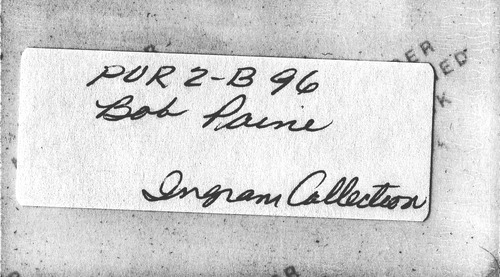 PUR 2-B 96
Bob Paine
Ingram Collection